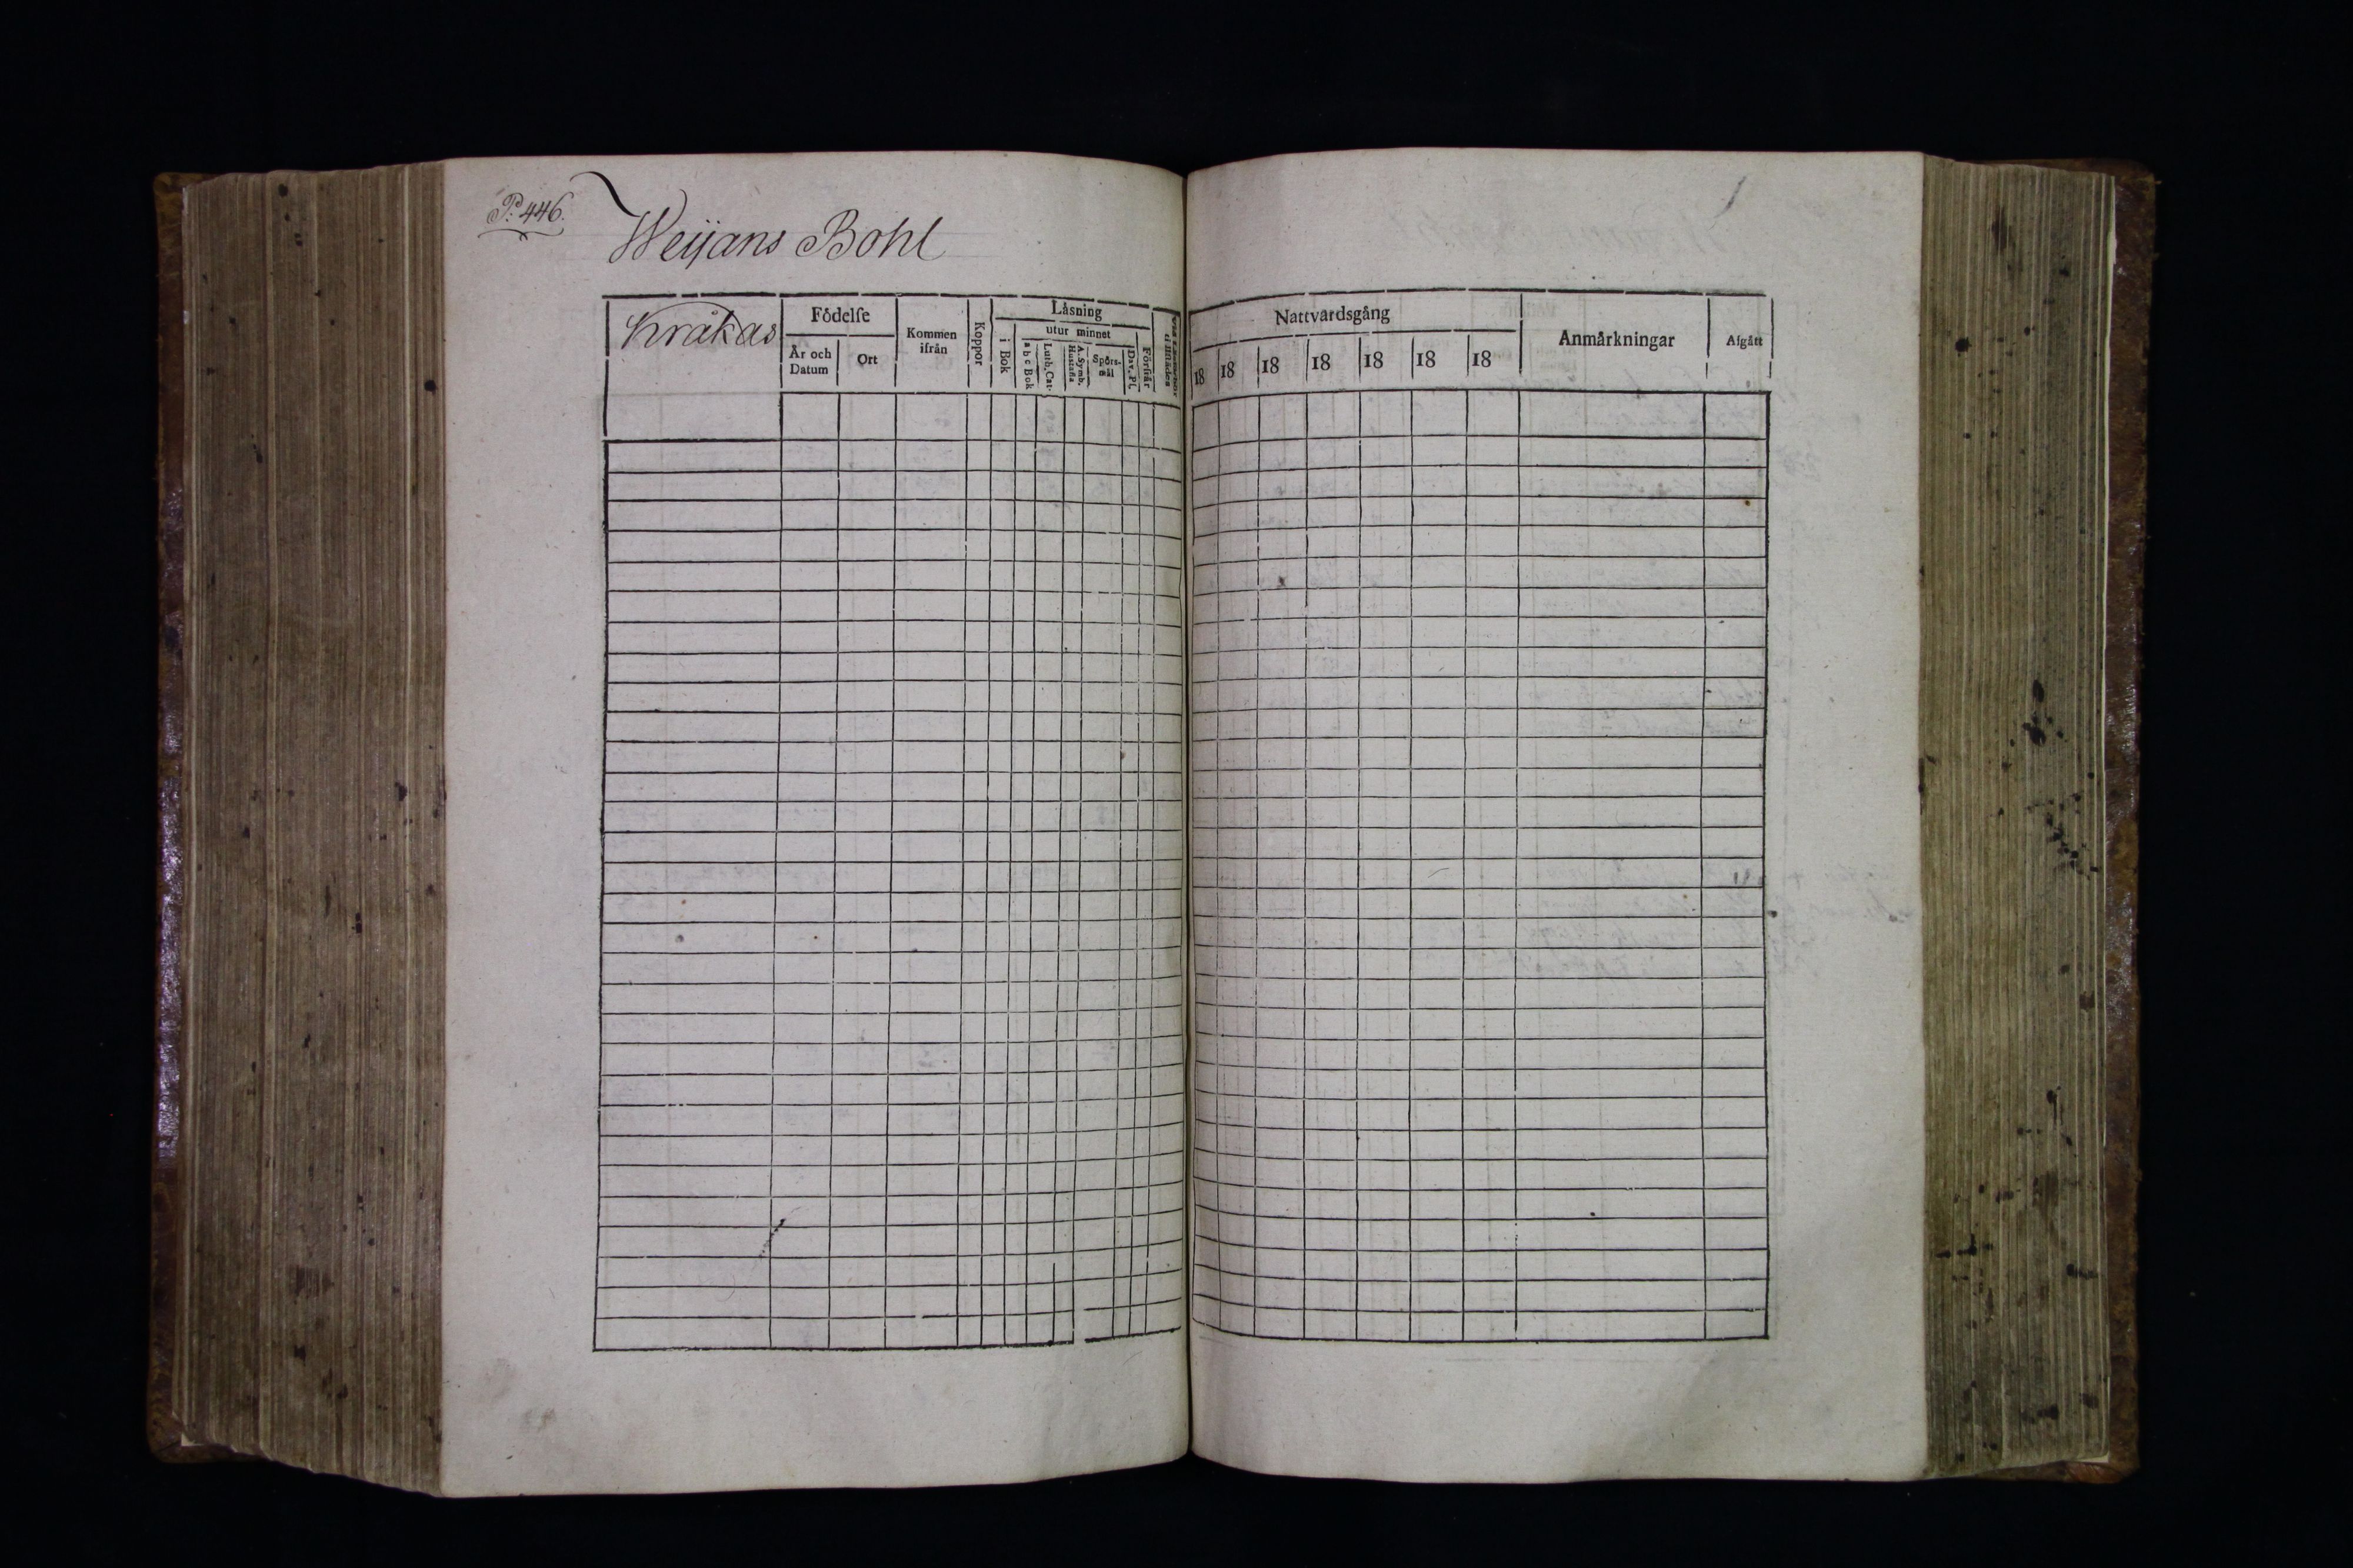 P: 446.
Weijans Bohl
Kråkas
Födelse
År och Datum
Ort
Kommen ifrån
Koppor
Läsning
i Bok
utur minnet
a b c Bok
Luth. Cat.
A. Symb.
Hustafla
Spörsmål
Dav. Ps.
Förstår
Nattvardsgång
18 18 18 18 18 18 18
Anmärkningar
Afgått